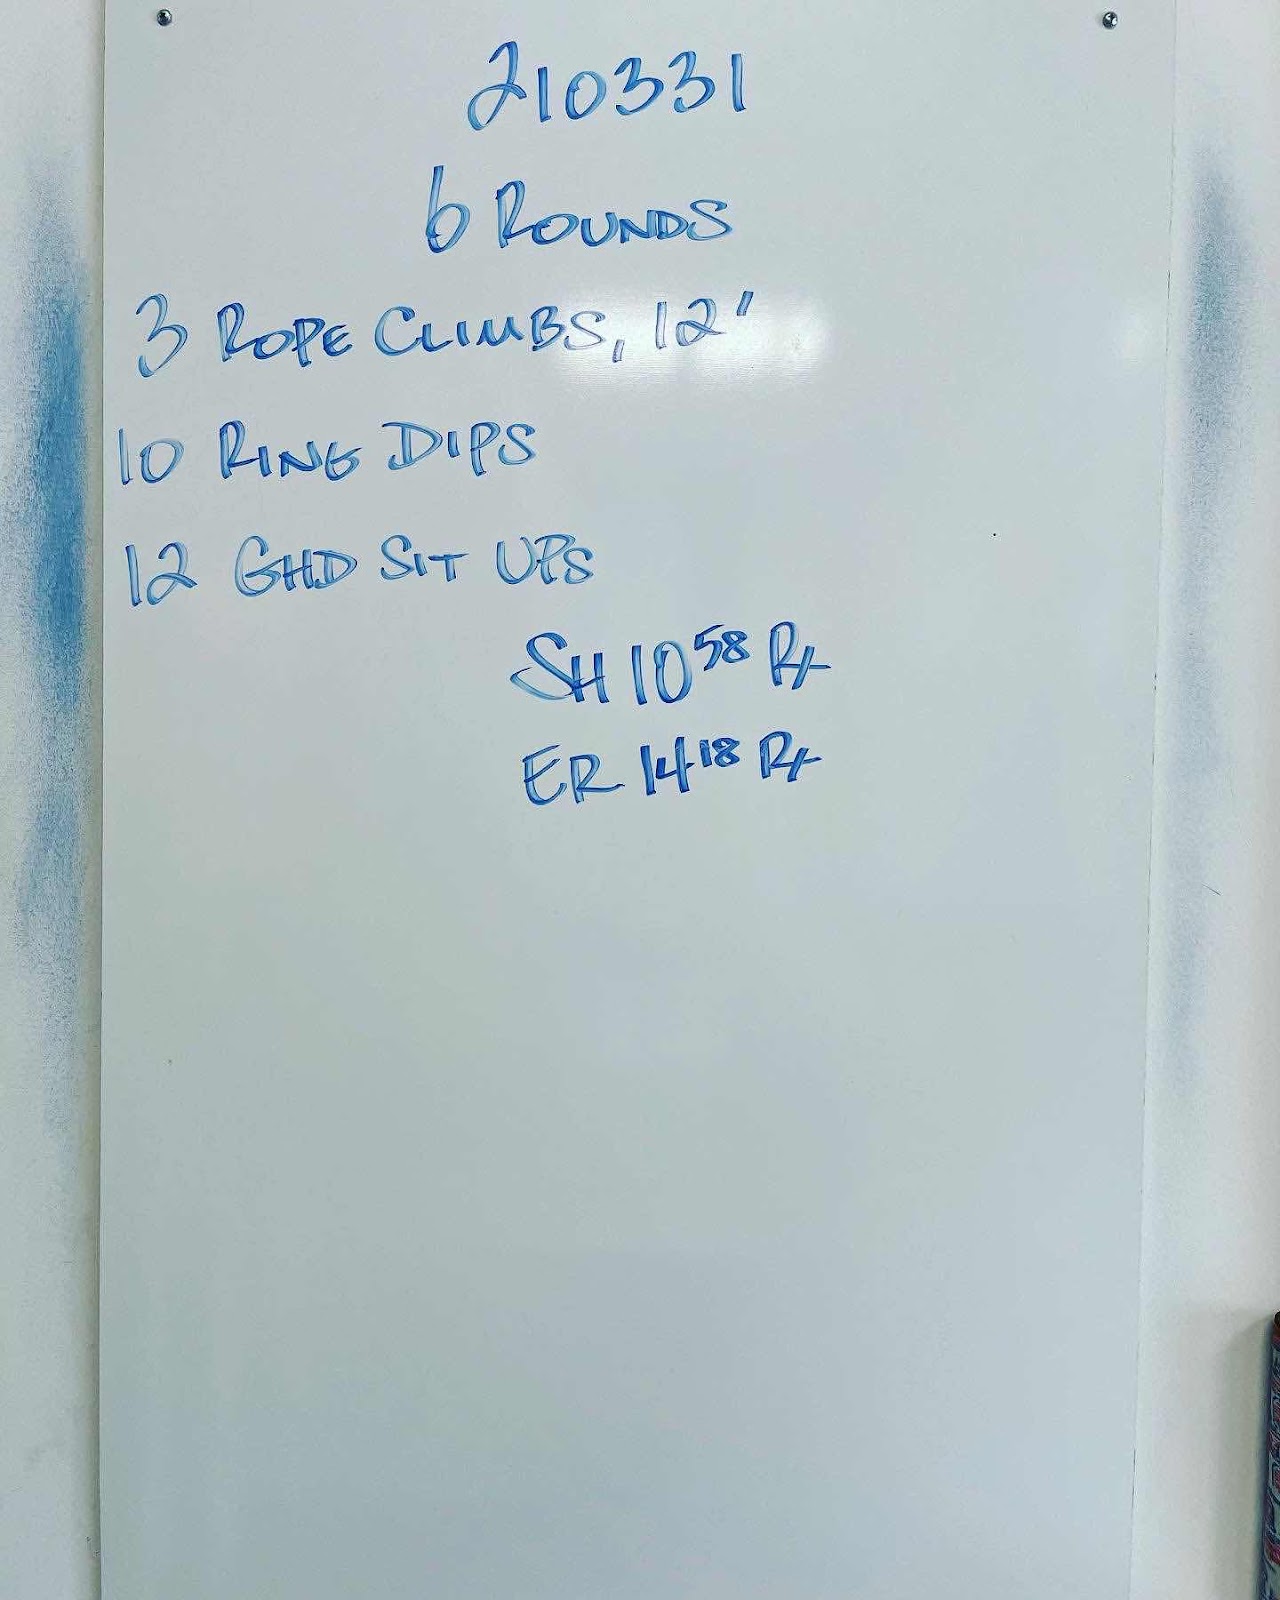 210331
6 ROUNDS
3 ROPE CLIMBS, 12'
10 RING DIPS
12 GHD SIT UPS
SH 10 58 Rx
ER 14 18 Rx